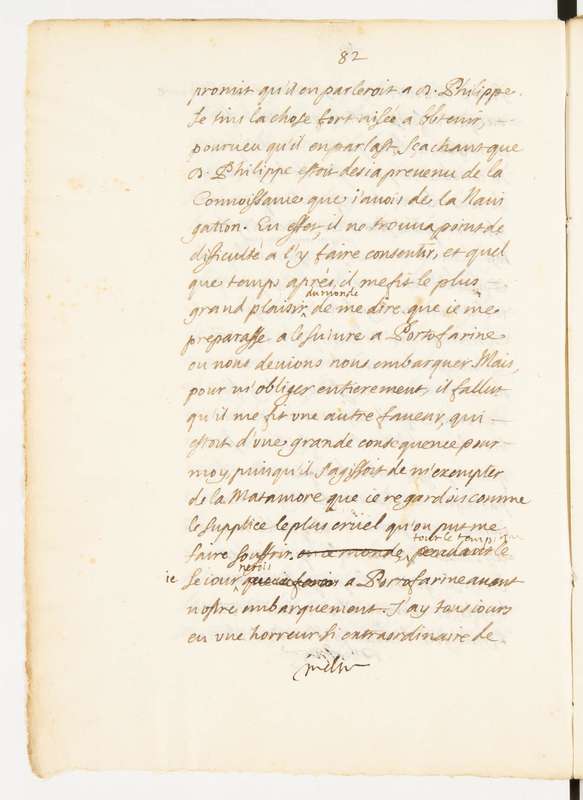 82
promit qu'il en parleroit a D. Philippe.
Je tins la chose fort aisée a obtenir,
pourueu qu'il en parlast, sçachant que
D. Philippe estoit desia preuenu de la
Connoissance que i'auois de la Naui
gation. En effet, il ne trouua point de
difficulté a l'y faire consentir, et quel
que temps aprés, il me fit le plus
du monde
grand plaisir, de me dire que ie me
preparasse a le suiure a Portofarine
ou nous deuions nous embarquer. Mais,
pour m'obliger entierement, il fallut
qu'il me fit vne autre faueur, qui
estoit d'vne grande consequence pour
moy, puisqu'il s'agissoit de m'exempter
de la Matamore que ie regardois comme
le supplice le plus crüel qu'on put me
tout le temps
faire souffrir en ce monde, pendant le
ie Seiour que ferois a Portofarine auant
nostre embarquement. J'ay tousiours
eu vne horreur si extraordinaire de